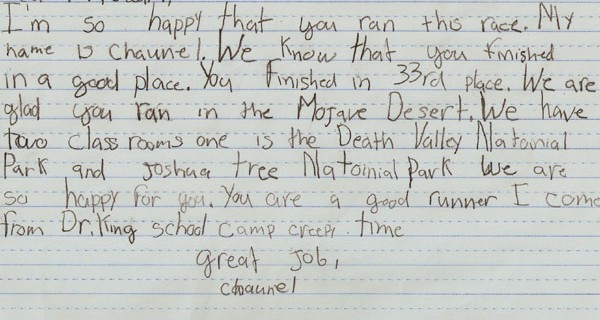 I'm so happy that you ran this race. My
name is Chaunel. We know that you finished
in a good place. You finished in 33rd place. We are
glad you ran in the Mojave Desert. We have
two classrooms one is the Death Valley Natainial
Park and Joshua tree Natoinial Park We are
so happy for you. You are a good runner I come
from Dr. King school camp creepi time
great job,
chaunel